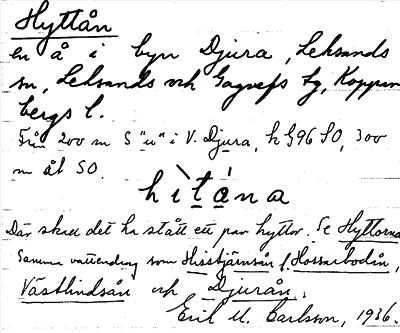 Hyttån
en å i byn Djura, Leksands
sn, Leksands och Gagnefs tg, Koppar
bergs l.
Från 200 m S "u" i V. Djura, h 696 SO, 300
m åt SO.
hìtána
Där skall det ha stått ett par hyttor. Se Hyttorna
Samma vattendrag som Hisstjärnsån f. Hossarbodån,
Västlindsån och Djurån.
Erik M. Carlsson, 1936.